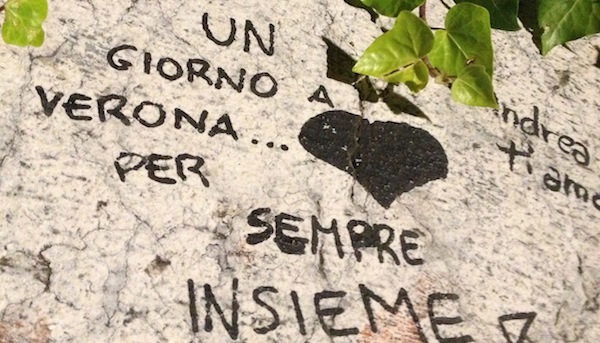 UN
GIORNO A
VERONA...
PER
SEMPRE
INSIEME
ndrea
ti amo